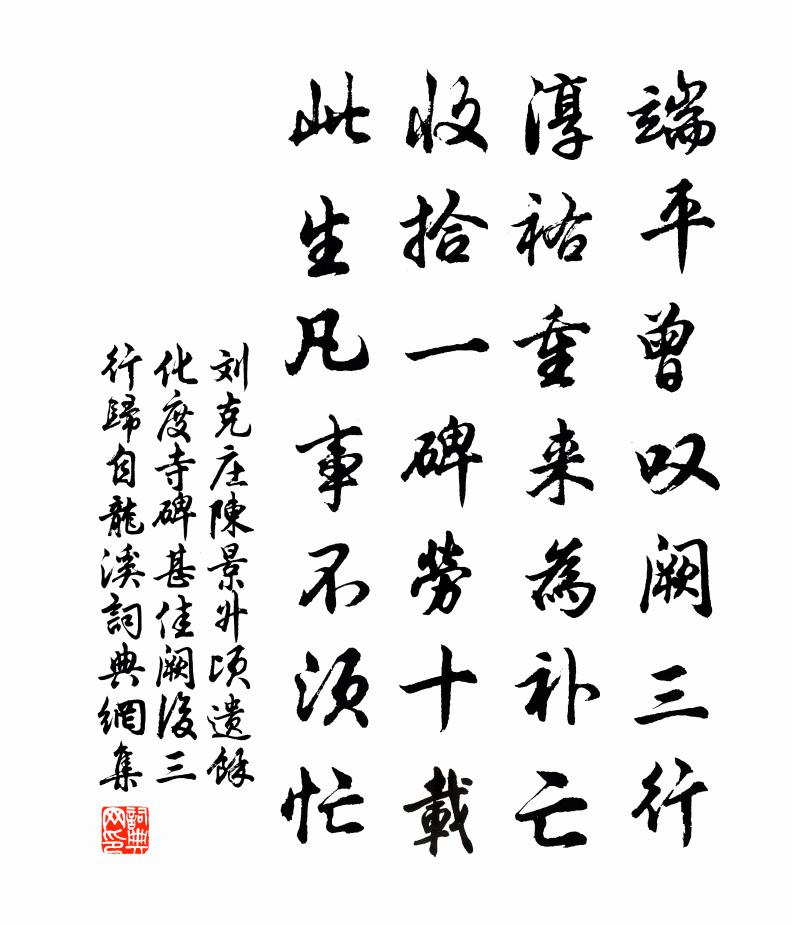 端平曾叹阙三行
淳祐重来為补亡
收拾一碑勞十載
此生凡事不须忙
刘克庄陳景升顷遗餘
化度寺碑甚佳阙後三
行歸自龍溪詞典網集
詞典网印